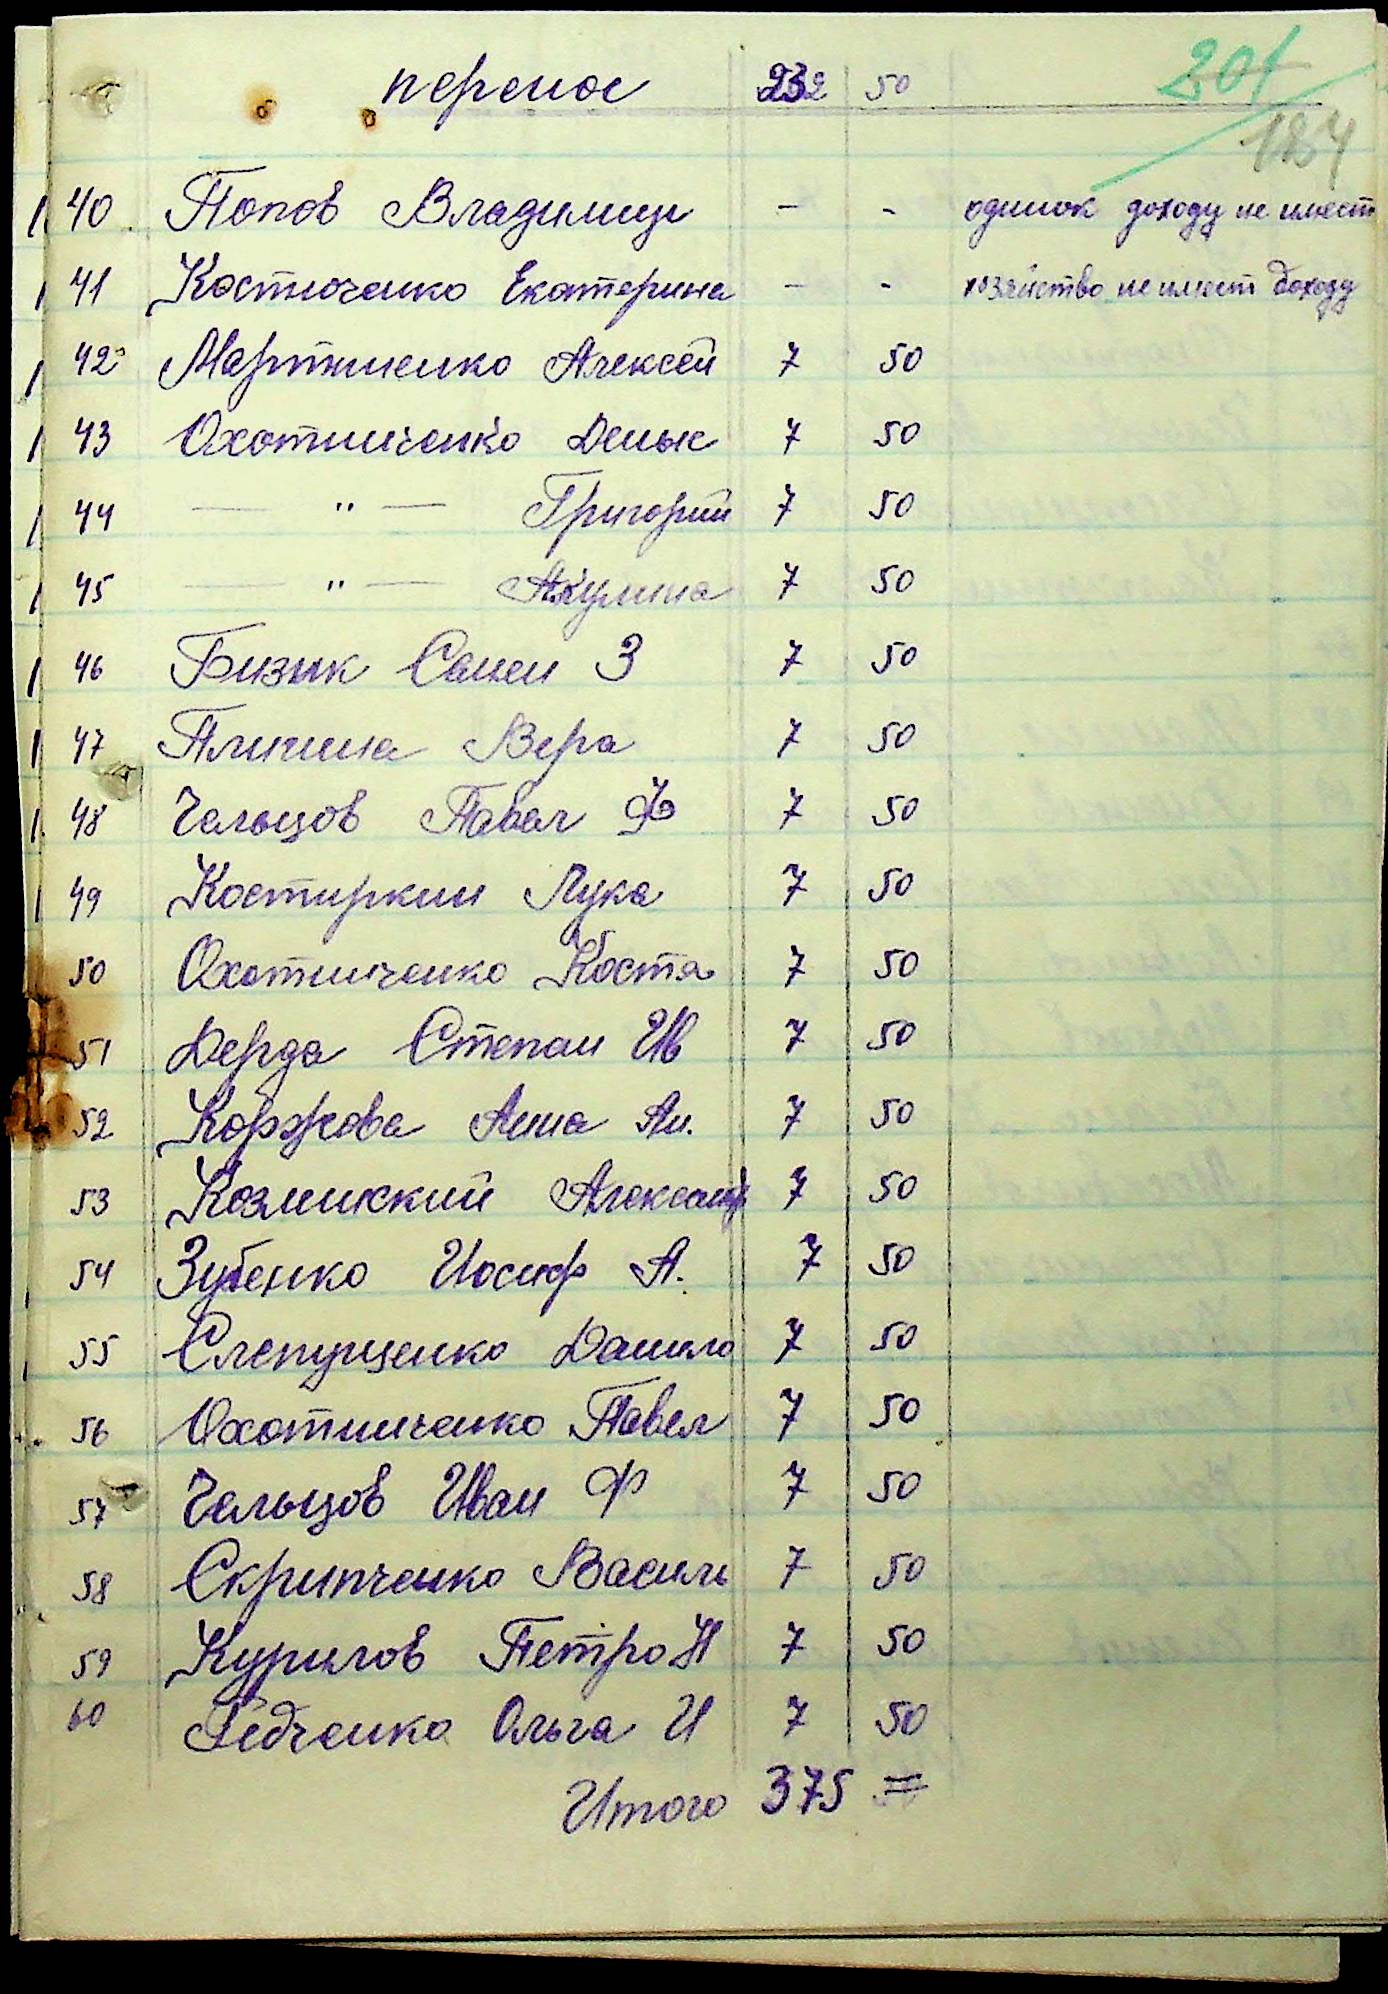 201
184
перенос 232 50
40 Попов Владимир - - одинок доходу не имеет
41 Костюченко Екатерина - - хозяйство не имеет доходу
42 Мартыненко Алексей 7 50
43 Охотниченко Демьян 7 50
44 — " — Григорий 7 50
45 — " — Акулина 7 50
46 Бизик Семен З 7 50
47 Вера 7 50
48 Чельцов Павел Ф 7 50
49 Костиркин Лука 7 50
50 Охотниченко Костя 7 50
51 Дерда Степан Ив 7 50
52 Коржова Анна Ан. 7 50
53 Козминский Александр 7 50
54 Зубенко Иосиф А. 7 50
55 Слепущенко Данило 7 50
56 Охотниченко Павел 7 50
57 Чельцов Иван Ф 7 50
58 Скрипченко Василь 7 50
59 Курилов Петро Н 7 50
60 Редченко Ольга И 7 50
Итого 375 =